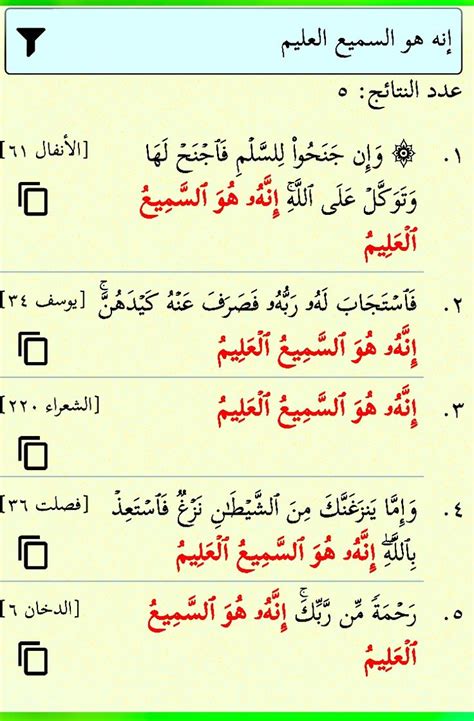 إنه هو السميع العليم
عدد النتائج: ٥
١. ۞ وَإِن جَنَحُوا۟ لِلسَّلْمِ فَٱجْنَحْ لَهَا [الأنفال ٦١]
وَتَوَكَّلْ عَلَى ٱللَّهِۚ إِنَّهُۥ هُوَ ٱلسَّمِيعُ
ٱلْعَلِيمُ
٢. فَٱسْتَجَابَ لَهُۥ رَبُّهُۥ فَصَرَفَ عَنْهُ كَيْدَهُنَّۚ [يوسف ٣٤]
إِنَّهُۥ هُوَ ٱلسَّمِيعُ ٱلْعَلِيمُ
٣. إِنَّهُۥ هُوَ ٱلسَّمِيعُ ٱلْعَلِيمُ [الشعراء ٢٢٠]
٤. وَإِمَّا يَنزَغَنَّكَ مِنَ ٱلشَّيْطَٰنِ نَزْغٌ فَٱسْتَعِذْ [فصلت ٣٦]
بِٱللَّهِۖ إِنَّهُۥ هُوَ ٱلسَّمِيعُ ٱلْعَلِيمُ
٥. رَحْمَةً مِّن رَّبِّكَۚ إِنَّهُۥ هُوَ ٱلسَّمِيعُ [الدخان ٦]
ٱلْعَلِيمُ